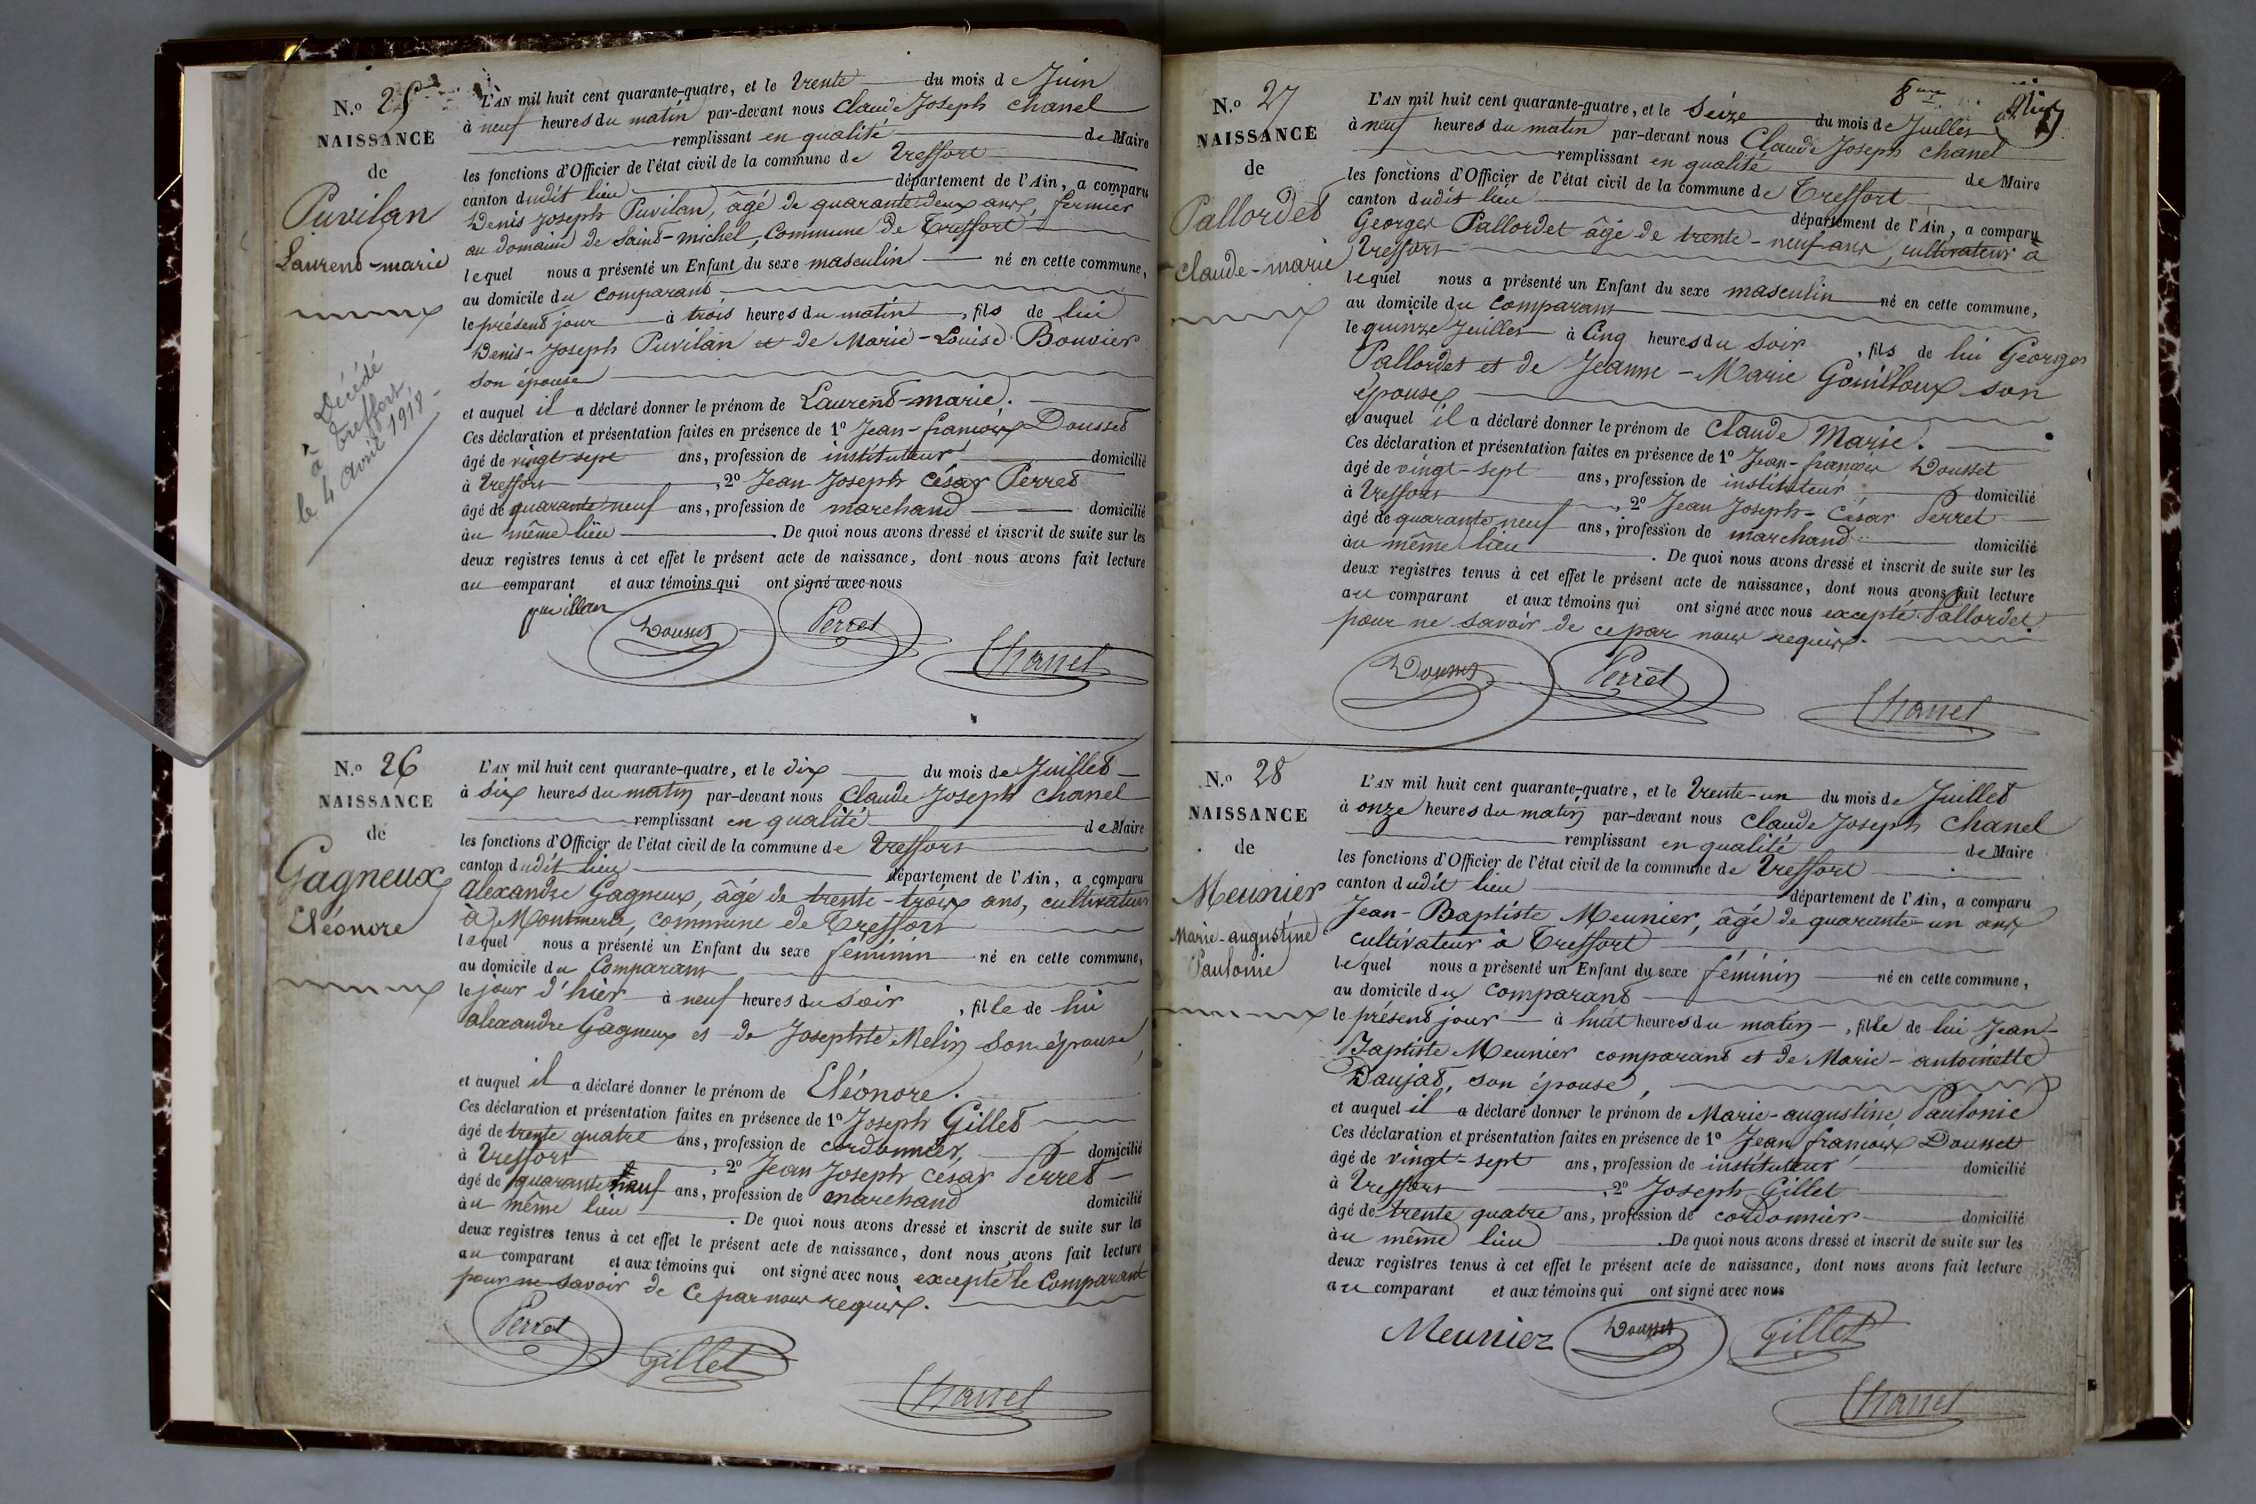 N.o 25
NAISSANCE
de
Puvilan
Laurent-marie
Décédé
à Treffort
le 4 avril 1918
L'AN mil huit cent quarante-quatre, et le trente du mois de Juin
à neuf heures du matin par-devant nous Claude Joseph Chanel
remplissant en qualité de Maire
les fonctions d'Officier de l'état civil de la commune de Treffort
canton dudit lieu département de l'Ain, a comparu
Denis Joseph Puvilan, âgé de quarante deux ans, fermier
au domaine de Saint-michel, Commune de Treffort
lequel nous a présenté un Enfant du sexe masculin né en cette commune,
au domicile du comparant
le présent jour à trois heures du matin, fils de lui
Denis-Joseph Puvilan et de Marie-Louise Bouvier
son épouse
et auquel il a déclaré donner le prénom de Laurent-marie.
Ces déclaration et présentation faites en présence de 1º Jean-françois Dousset
âgé de vingt sept ans, profession de instituteur domicilié
à Treffort, 2º Jean Joseph César Perret
âgé de quarante neuf ans, profession de marchand domicilié
au même lieu. De quoi nous avons dressé et inscrit de suite sur les
deux registres tenus à cet effet le présent acte de naissance, dont nous avons fait lecture
au comparant et aux témoins qui ont signé avec nous
puvillan Dousset Perret
Chanel
N.o 26
NAISSANCE
de
Gagneux
Eléonore
L'AN mil huit cent quarante-quatre, et le dix du mois de Juillet
à six heures du matin par-devant nous Claude Joseph Chanel
remplissant en qualité de Maire
les fonctions d'Officier de l'état civil de la commune de Treffort
canton dudit lieu département de l'Ain, a comparu
alexandre Gagneux, âgé de trente-trois ans, cultivateur
à Montmerle, commune de Treffort
lequel nous a présenté un Enfant du sexe féminin né en cette commune,
au domicile du Comparant
le jour d'hier à neuf heures du soir, fille de lui
alexandre Gagneux et de Josephte Melin son épouse,
et auquel il a déclaré donner le prénom de Eléonore.
Ces déclaration et présentation faites en présence de 1º Joseph Gillet
âgé de trente quatre ans, profession de cordonnier, domicilié
à Treffort, 2º Jean Joseph César Perret
âgé de quarante neuf ans, profession de marchand domicilié
au même lieu. De quoi nous avons dressé et inscrit de suite sur les
deux registres tenus à cet effet le présent acte de naissance, dont nous avons fait lecture
au comparant et aux témoins qui ont signé avec nous excepté le Comparant
pour ne savoir de ce par nous requis.
Perret Gillet
Chanel
N.o 27
NAISSANCE
de
Pallordet
Claude-marie
L'AN mil huit cent quarante-quatre, et le Seize du mois de Juillet
à neuf heures du matin par-devant nous Claude Joseph Chanel
remplissant en qualité de Maire
les fonctions d'Officier de l'état civil de la commune de Treffort
canton dudit lieu département de l'Ain, a comparu
Georges Pallordet âgé de trente-neuf ans, cultivateur à
Treffort
lequel nous a présenté un Enfant du sexe masculin né en cette commune,
au domicile du Comparant
le quinze Juillet à Cinq heures du soir, fils de lui Georges
Pallordet et de Jeanne-Marie Gouilloux son
épouse
et auquel il a déclaré donner le prénom de Claude Marie.
Ces déclaration et présentation faites en présence de 1º Jean-françois Dousset
âgé de vingt-sept ans, profession de instituteur domicilié
à Treffort, 2º Jean Joseph-César Perret
âgé de quarante neuf ans, profession de marchand domicilié
au même lieu. De quoi nous avons dressé et inscrit de suite sur les
deux registres tenus à cet effet le présent acte de naissance, dont nous avons fait lecture
au comparant et aux témoins qui ont signé avec nous excepté Pallordet
pour ne savoir de ce par nous requis.
Dousset Perret
Chanel
N.o 28
NAISSANCE
de
Meunier
Marie-augustine
Paulonie
L'AN mil huit cent quarante-quatre, et le trente-un du mois de Juillet
à onze heures du matin par-devant nous Claude Joseph Chanel
remplissant en qualité de Maire
les fonctions d'Officier de l'état civil de la commune de Treffort
canton dudit lieu département de l'Ain, a comparu
Jean-Baptiste Meunier, âgé de quarante un ans
cultivateur à Treffort
lequel nous a présenté un Enfant du sexe féminin né en cette commune,
au domicile du comparant
le présent jour à huit heures du matin, fille de lui Jean
Baptiste Meunier comparant et de Marie-antoinette
Daujat, son épouse,
et auquel il a déclaré donner le prénom de Marie-augustine Paulonie
Ces déclaration et présentation faites en présence de 1º Jean françois Dousset
âgé de vingt-sept ans, profession de instituteur domicilié
à Treffort, 2º Joseph Gillet
âgé de trente quatre ans, profession de cordonnier domicilié
au même lieu. De quoi nous avons dressé et inscrit de suite sur les
deux registres tenus à cet effet le présent acte de naissance, dont nous avons fait lecture
au comparant et aux témoins qui ont signé avec nous
Meunier Dousset Gillet
Chanel